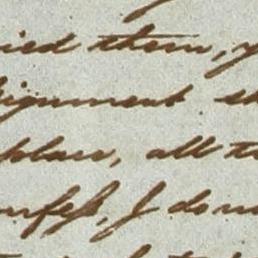 ied them, y
ignment sh
place, all t
nfess, I do n